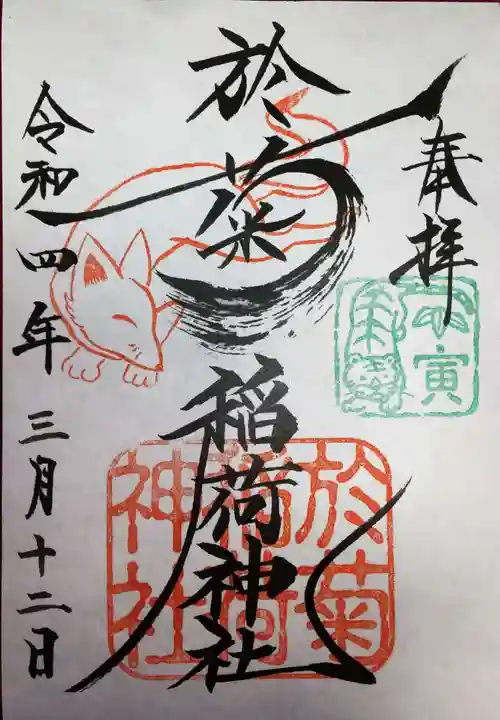 奉拝
壬寅
於菊
稲荷神社
於菊
稲荷
神社
令和四年 三月十二日